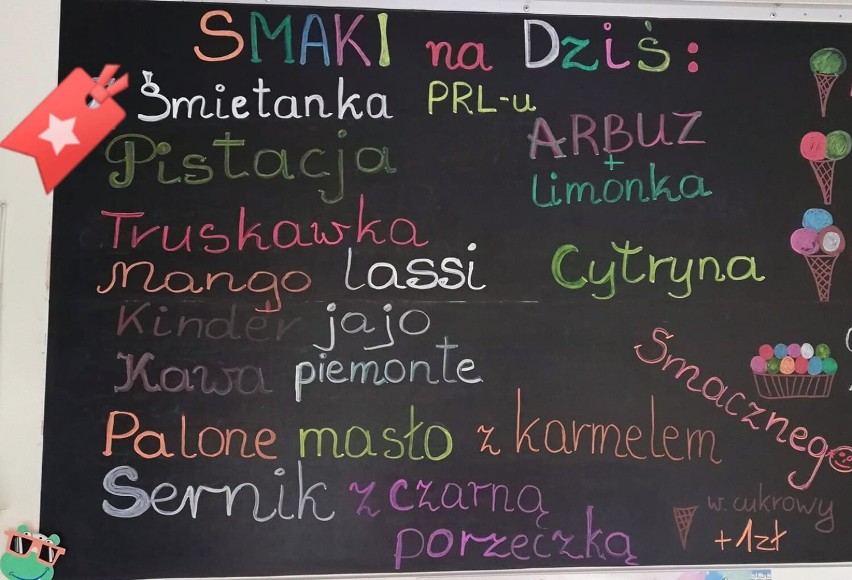 SMAKI na Dziś:
Śmietanka PRL-u
Pistacja
Truskawka
Mango lassi
Kinder jajo
Kawa piemonte
Palone masło z karmelem
Sernik z czarną
porzeczką
ARBUZ
+
limonka
Cytryna
Smacznego
w. cukrowy
+1zł